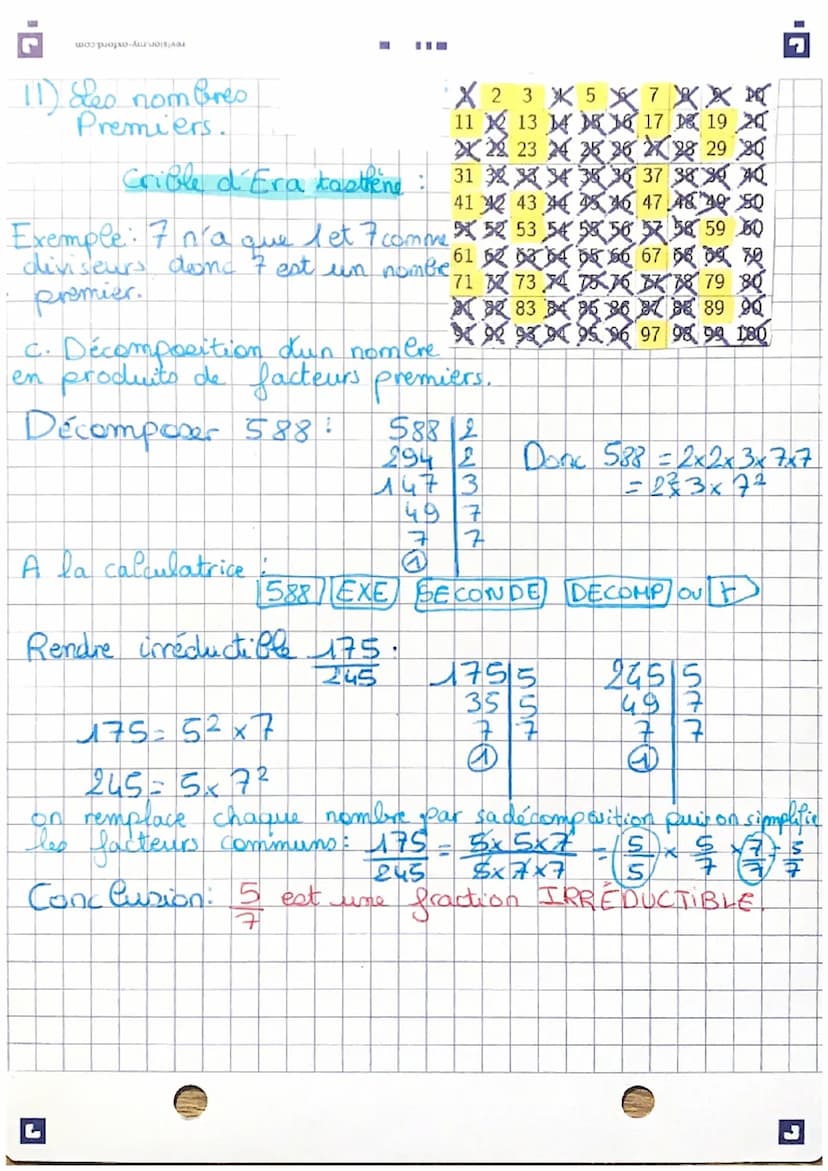 revision.my-oxford.com
II) Les nombres
Premiers.
Crible d'Eratosthène :
Exemple: 7 n'a que 1 et 7 comme
diviseurs donc 7 est un nombre
premier.
1 2 3 4 5 6 7 8 9 10
11 12 13 14 15 16 17 18 19 20
21 22 23 24 25 26 27 28 29 30
31 32 33 34 35 36 37 38 39 40
41 42 43 44 45 46 47 48 49 50
51 52 53 54 55 56 57 58 59 60
61 62 63 64 65 66 67 68 69 70
71 72 73 74 75 76 77 78 79 80
81 82 83 84 85 86 87 88 89 90
91 92 93 94 95 96 97 98 99 100
c. Décomposition d'un nombre
en produits de facteurs premiers.
Décomposer 588 :
588 | 2
294 | 2
147 | 3
49 | 7
7 | 7
1
Donc 588 = 2x2x3x7x7
= 2²x3x7²
A la calculatrice :
588 EXE SECONDE DECOMP OU F
Rendre irréductible 175/245.
175 | 5
35 | 5
7 | 7
1
245 | 5
49 | 7
7 | 7
1
175 = 5² x 7
245 = 5 x 7²
on remplace chaque nombre par sa décomposition puis on simplifie
les facteurs communs : 175/245 = 5x5x7/5x7x7 = 5/5 x 5/7 x 7/7 = 5/7
Conclusion: 5/7 est une fraction IRRÉDUCTIBLE.